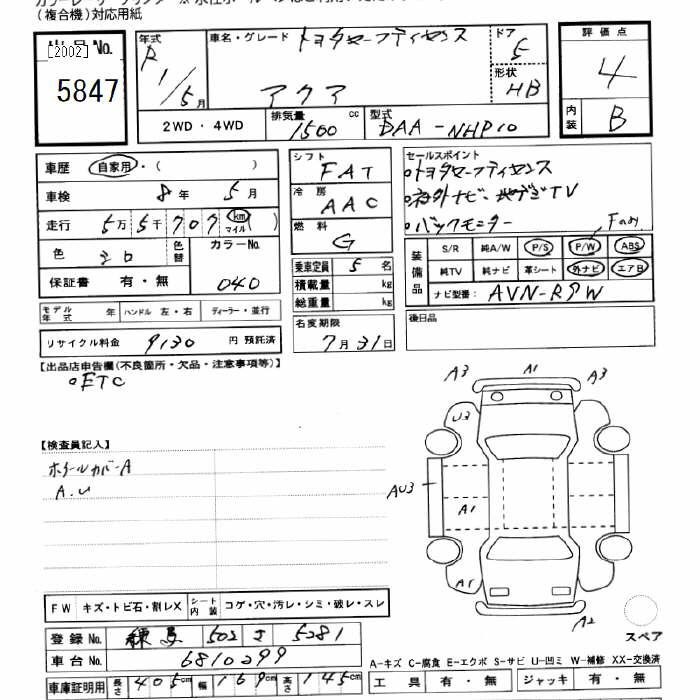 (複合機)対応用紙
出品No.
[2002]
5847
年式 R1/5月
車名・グレード トヨタセーフティセンス
アクア
ドア 5
形状 HB
2WD・4WD
排気量 1500 cc
型式 DAA-NHP10
評価点 4
内装 B
車歴 自家用・( )
車検 8年 5月
走行 5万5千707 km マイル
色 シロ
色替
カラーNo. 040
保証書 有・無
モデル年式 年 ハンドル 左・右 ディーラー・並行
リサイクル料金 9130 円 預託済
シフト FAT
冷房 AAC
燃料 G
乗車定員 5 名
積載量 kg
総重量 kg
名変期限
7月31日
セールスポイント
○トヨタセーフティセンス
○社外ナビ・地デジTV
○バックモニター
装備品 S/R 純A/W P/S P/W ABS
純TV 純ナビ 革シート 外ナビ エアB
ナビ型番: AVN-R9W
後日品
【出品店申告欄(不良箇所・欠品・注意事項等)】
○ETC
【検査員記入】
ホイールカバーA
A.U
A3 A1 A3
U3
AU3
A1
A1
A2
スペア
FW キズ・トビ石・割レX シート内装 コゲ・穴・汚レ・シミ・破レ・スレ
登録No. 練馬 502 さ 5281
車台No. 6810299
車庫証明用 長さ 405cm 幅 169cm 高さ 145cm
A-キズ C-腐食 E-エクボ S-サビ U-凹ミ W-補修 XX-交換済
工具 有・無 ジャッキ 有・無